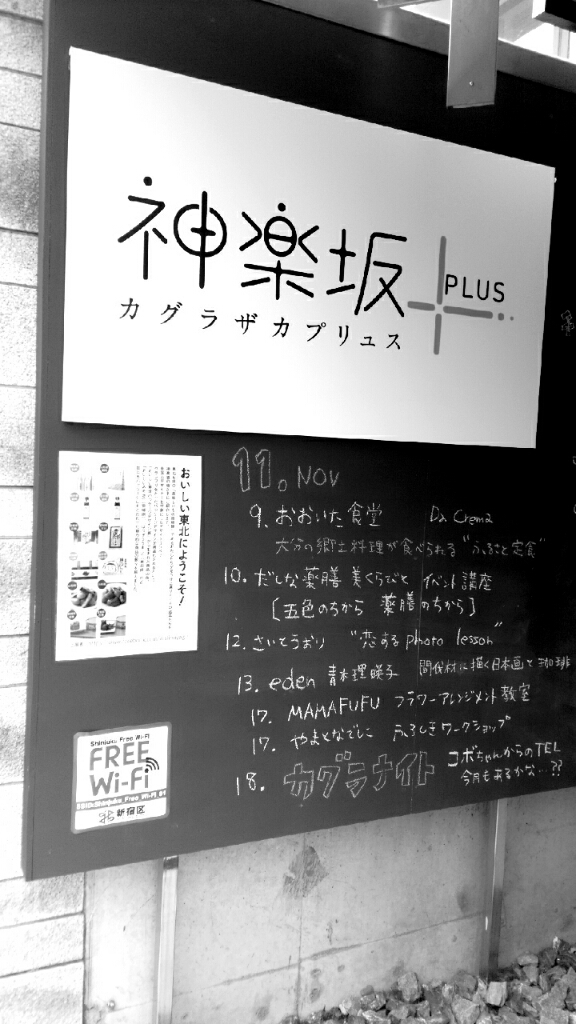 神楽坂
PLUS
カグラザカプリュス
おいしい東北にようこそ!
11. NOV
9. おおいた食堂 Da Crema
大分の郷土料理が食べられる"ふるさと定食"
10. だしな薬膳 美くらごと イベント講座
[五色のちから 薬膳のちから]
12. さいとうおり "恋するphoto lesson"
13. eden 青木理咲子 間伐材に描く日本画と珈琲
17. MAMAFUFU フラワーアレンジメント教室
17. やまとなでしこ ふろしきワークショップ
18. カグラナイト コボちゃんからのTEL
今月もあるかな…??
Shinjuku Free Wi-Fi
FREE
Wi-Fi
新宿区